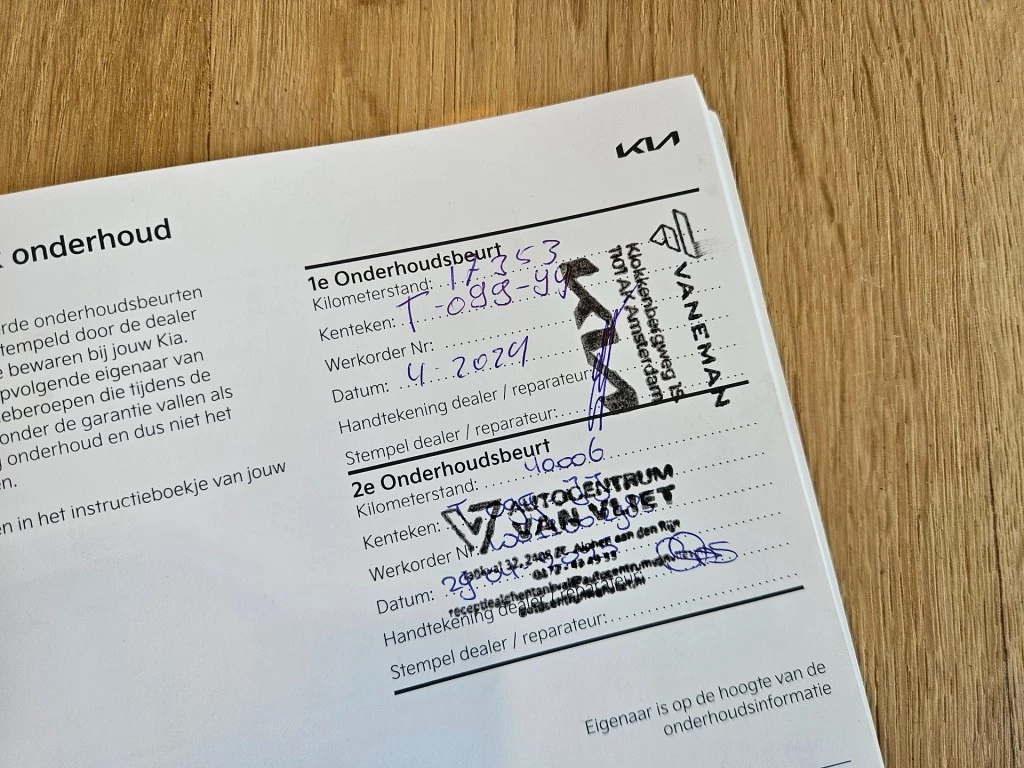 KIA
onderhoud
rde onderhoudsbeurten
tempeld door de dealer
e bewaren bij jouw Kia.
pvolgende eigenaar van
eberoepen die tijdens de
onder de garantie vallen als
onderhoud en dus niet het
en.
en in het instructieboekje van jouw
1e Onderhoudsbeurt
Kilometerstand: 17353
Kenteken: T-099-
Werkorder Nr:
Datum: 4-2024
Handtekening dealer / reparateur:
Stempel dealer / reparateur:
KIA
VANEMAN
Klokkenbergweg 15
1101 AK Amsterdam
2e Onderhoudsbeurt
Kilometerstand: 40006
Kenteken:
Werkorder N
Datum: 29-04
Handtekening dealer / reparateur:
Stempel dealer / reparateur:
AUTOCENTRUM
VAN VLIET
32, 2408 ZC Alphen aan den Rijn
Eigenaar is op de hoogte van de
onderhoudsinformatie